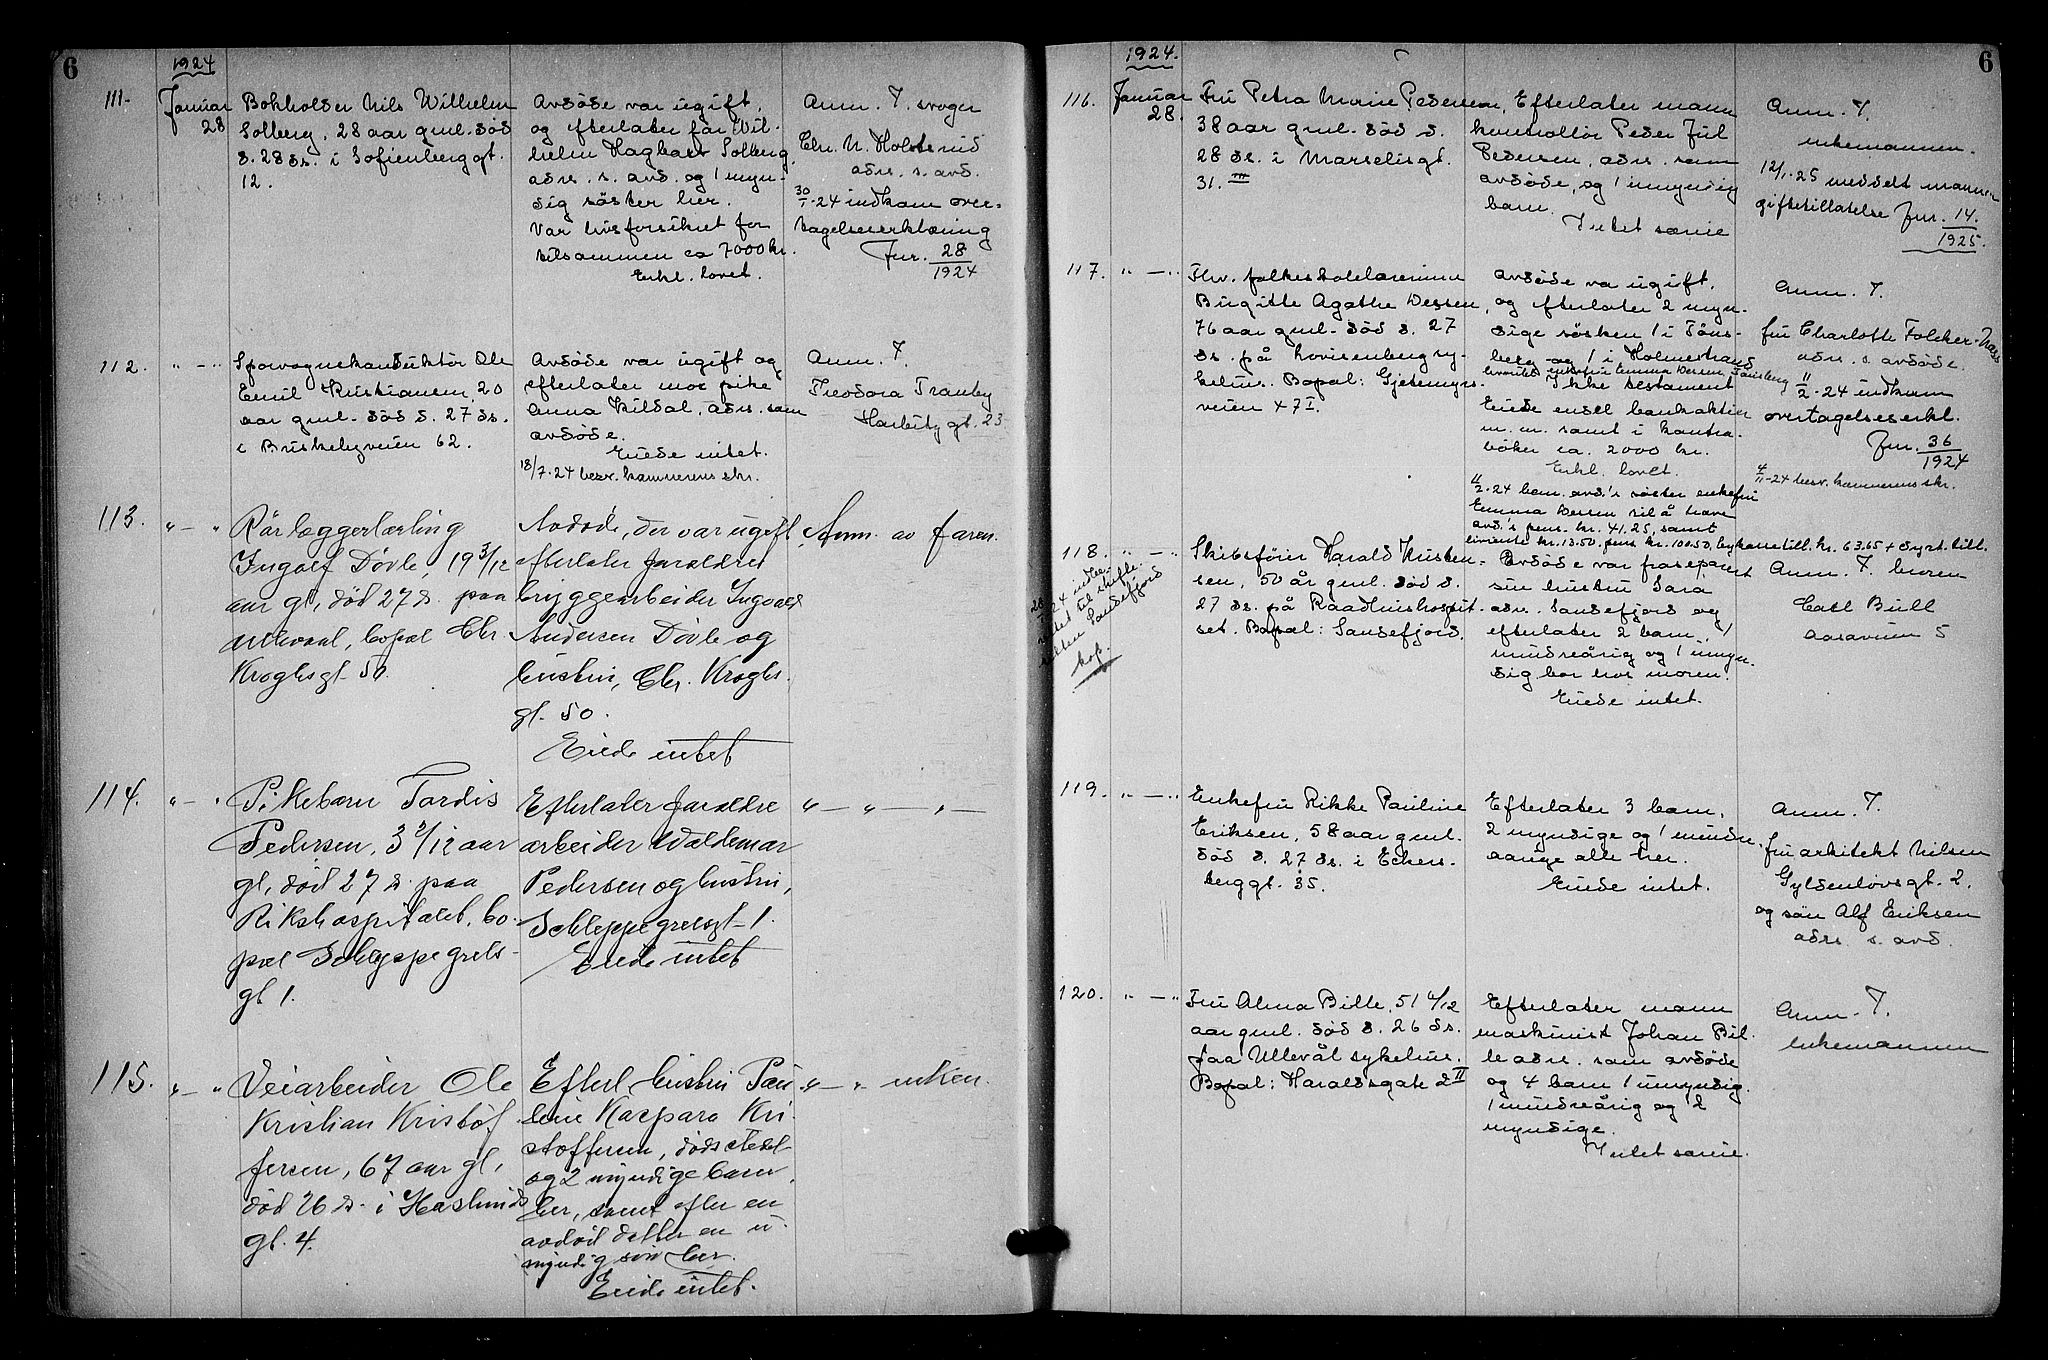 6
1924
111.
Januar
28
Bokholder Nils Wilhelm
Solberg, 28 aar gml. död
d. 28 ds. i Sofienberggt.
12.
Avdöde var ugift,
og efterlater far Wil-
helm Hagbart Solberg,
adrs. s. avd. og 1 myn-
dig söster her.
Var livsforsikret for
tilsammen ca 7000 kr.
Erkl. lovet.
Anm. F. svoger
Chr. N.
adrs. s. avd.
30/1-24 indkom over-
tagelseserklæring
Jnr. 28
1924
112.
" — "
Sporvognskonduktör Ole
Emil Kristiansen, 20
aar gml. död d. 27 ds.
i Briskebyveien 62.
Avdöde var ugift og
efterlater mor pike
Anna Kildal, adrs. som
avdöde.
Eiede intet.
18/7-24 besv. kemnerens skr.
Anm. F.
Theodora Tranby
Harbitz gt. 23
113.
" — "
Rörlæggerlærling
Ingolf Døvle, 19 3/12
aar gl, død 27 ds. paa
Ullevaal, bopæl Chr.
Kroghsgt 50.
Avdøde, der var ugift,
efterlater forældre
bryggearbeider Ingvald
Andersen Døvle og
hustru, Chr. Kroghs.
gt. 50.
Eiede intet
Anm. av faren.
114.
" — "
Pikebarn Tordis
Pedersen, 3 2/12 aar
gl, død 27 ds. paa
Rikshospitalet, bo-
pæl Schleppegrels-
gt 1.
Efterlater forældre
arbeider Waldemar
Pedersen og hustru,
Schleppegrelsgt 1.
Eiede intet
" — " — " —
115.
" — "
Veiarbeider Ole
Kristian Kristof
fersen, 67 aar gl,
død 26 ds. i Haslunds
gt. 4.
Efterl hustru Pau
line Kaspara Kri
stoffersen, dødsstedet
og 2 myndige barn
her, samt efter en
avdød datter en u-
myndig søn her.
Eiede intet.
" — " enken.
6
1924.
116.
Januar
28.
Fru Petra Marie Pedersen,
38 aar gml. död d.
28 ds. i Marselisgt.
31. III
Efterlater mann
kontrollör Peder Jul
Pedersen, adrs. som
avdöde, og 1 umyndig
barn.
Intet særeie
Anm. F.
enkemannen.
12/1-25 meddelt mannen
giftetillatelse Jnr. 14.
1925.
117.
" — "
Fhv. folkeskolelærerinne
Birgitte Agathe Dessen,
76 aar gml. död d. 27
ds. på Lovisenberg sy-
kehus. Bopæl: Gjetemyrs-
veien 47 I.
Avdöde va ugift,
og efterlater 2 myn-
dige sösken 1 i Töns-
berg og 1 i Holmestrand
enkefru Emma Dessen, Tönsberg
Ikke testament
Eiede endel bankaktier
m. m. samt i kontra-
böker ca. 2000 kr.
Erkl. lovet.
11/2-24 bem. avd.'s söster enkefru
Emma Dessen til å have
avd.'s pens. kr. 41.25, samt
livrente kr. 13.50, pens kr. 100.50, sykassetill. kr. 63.65 + dyrt. till.
Anm. F.
fru Charlotte Folcker-
adrs. s. avdöde.
11/2-24 indkom
overtagelseserkl.
Jnr. 36
1924
4/11-24 besv. kemnerens skr.
118.
" — "
kop.
Skibsförer Harald Kristen-
sen, 50 år gml. död d.
27 ds. på Raadhushospit-
set. Bopæl: Sandefjord.
Avdöde var fraseparert
sin hustru Sara
adr. Sandefjord og
efterlater 2 barn, 1
mindreårig og 1 umyn-
dig bor hos moren.
Eiede intet.
Anm. F. broren
Carl Bull
Aasaveien 5
119.
" — "
Enkefru Rikke Pauline
Eriksen, 58 aar gml.
död d. 27 ds. i Eckers-
berggt. 35.
Efterlater 3 barn,
2 myndige og 1 mindre-
aarige alle her.
Eiede intet.
Anm. F.
fru arkitekt Nilsen
Gyldenlövsgt. 2.
og sön Alf Eriksen
adrs. s. avd.
120.
" — "
Fru Alma Bille, 51 4/12
aar gml. död d. 26 ds.
paa Ullevål sykehus.
Bopæl: Haraldsgate 2 II
Efterlater mann
maskinist Johan Bil-
le adrs. som avdöde
og 4 barn 1 umyndig.
1 mindreårig og 2
myndige.
Intet særeie.
Anm. F.
enkemannen